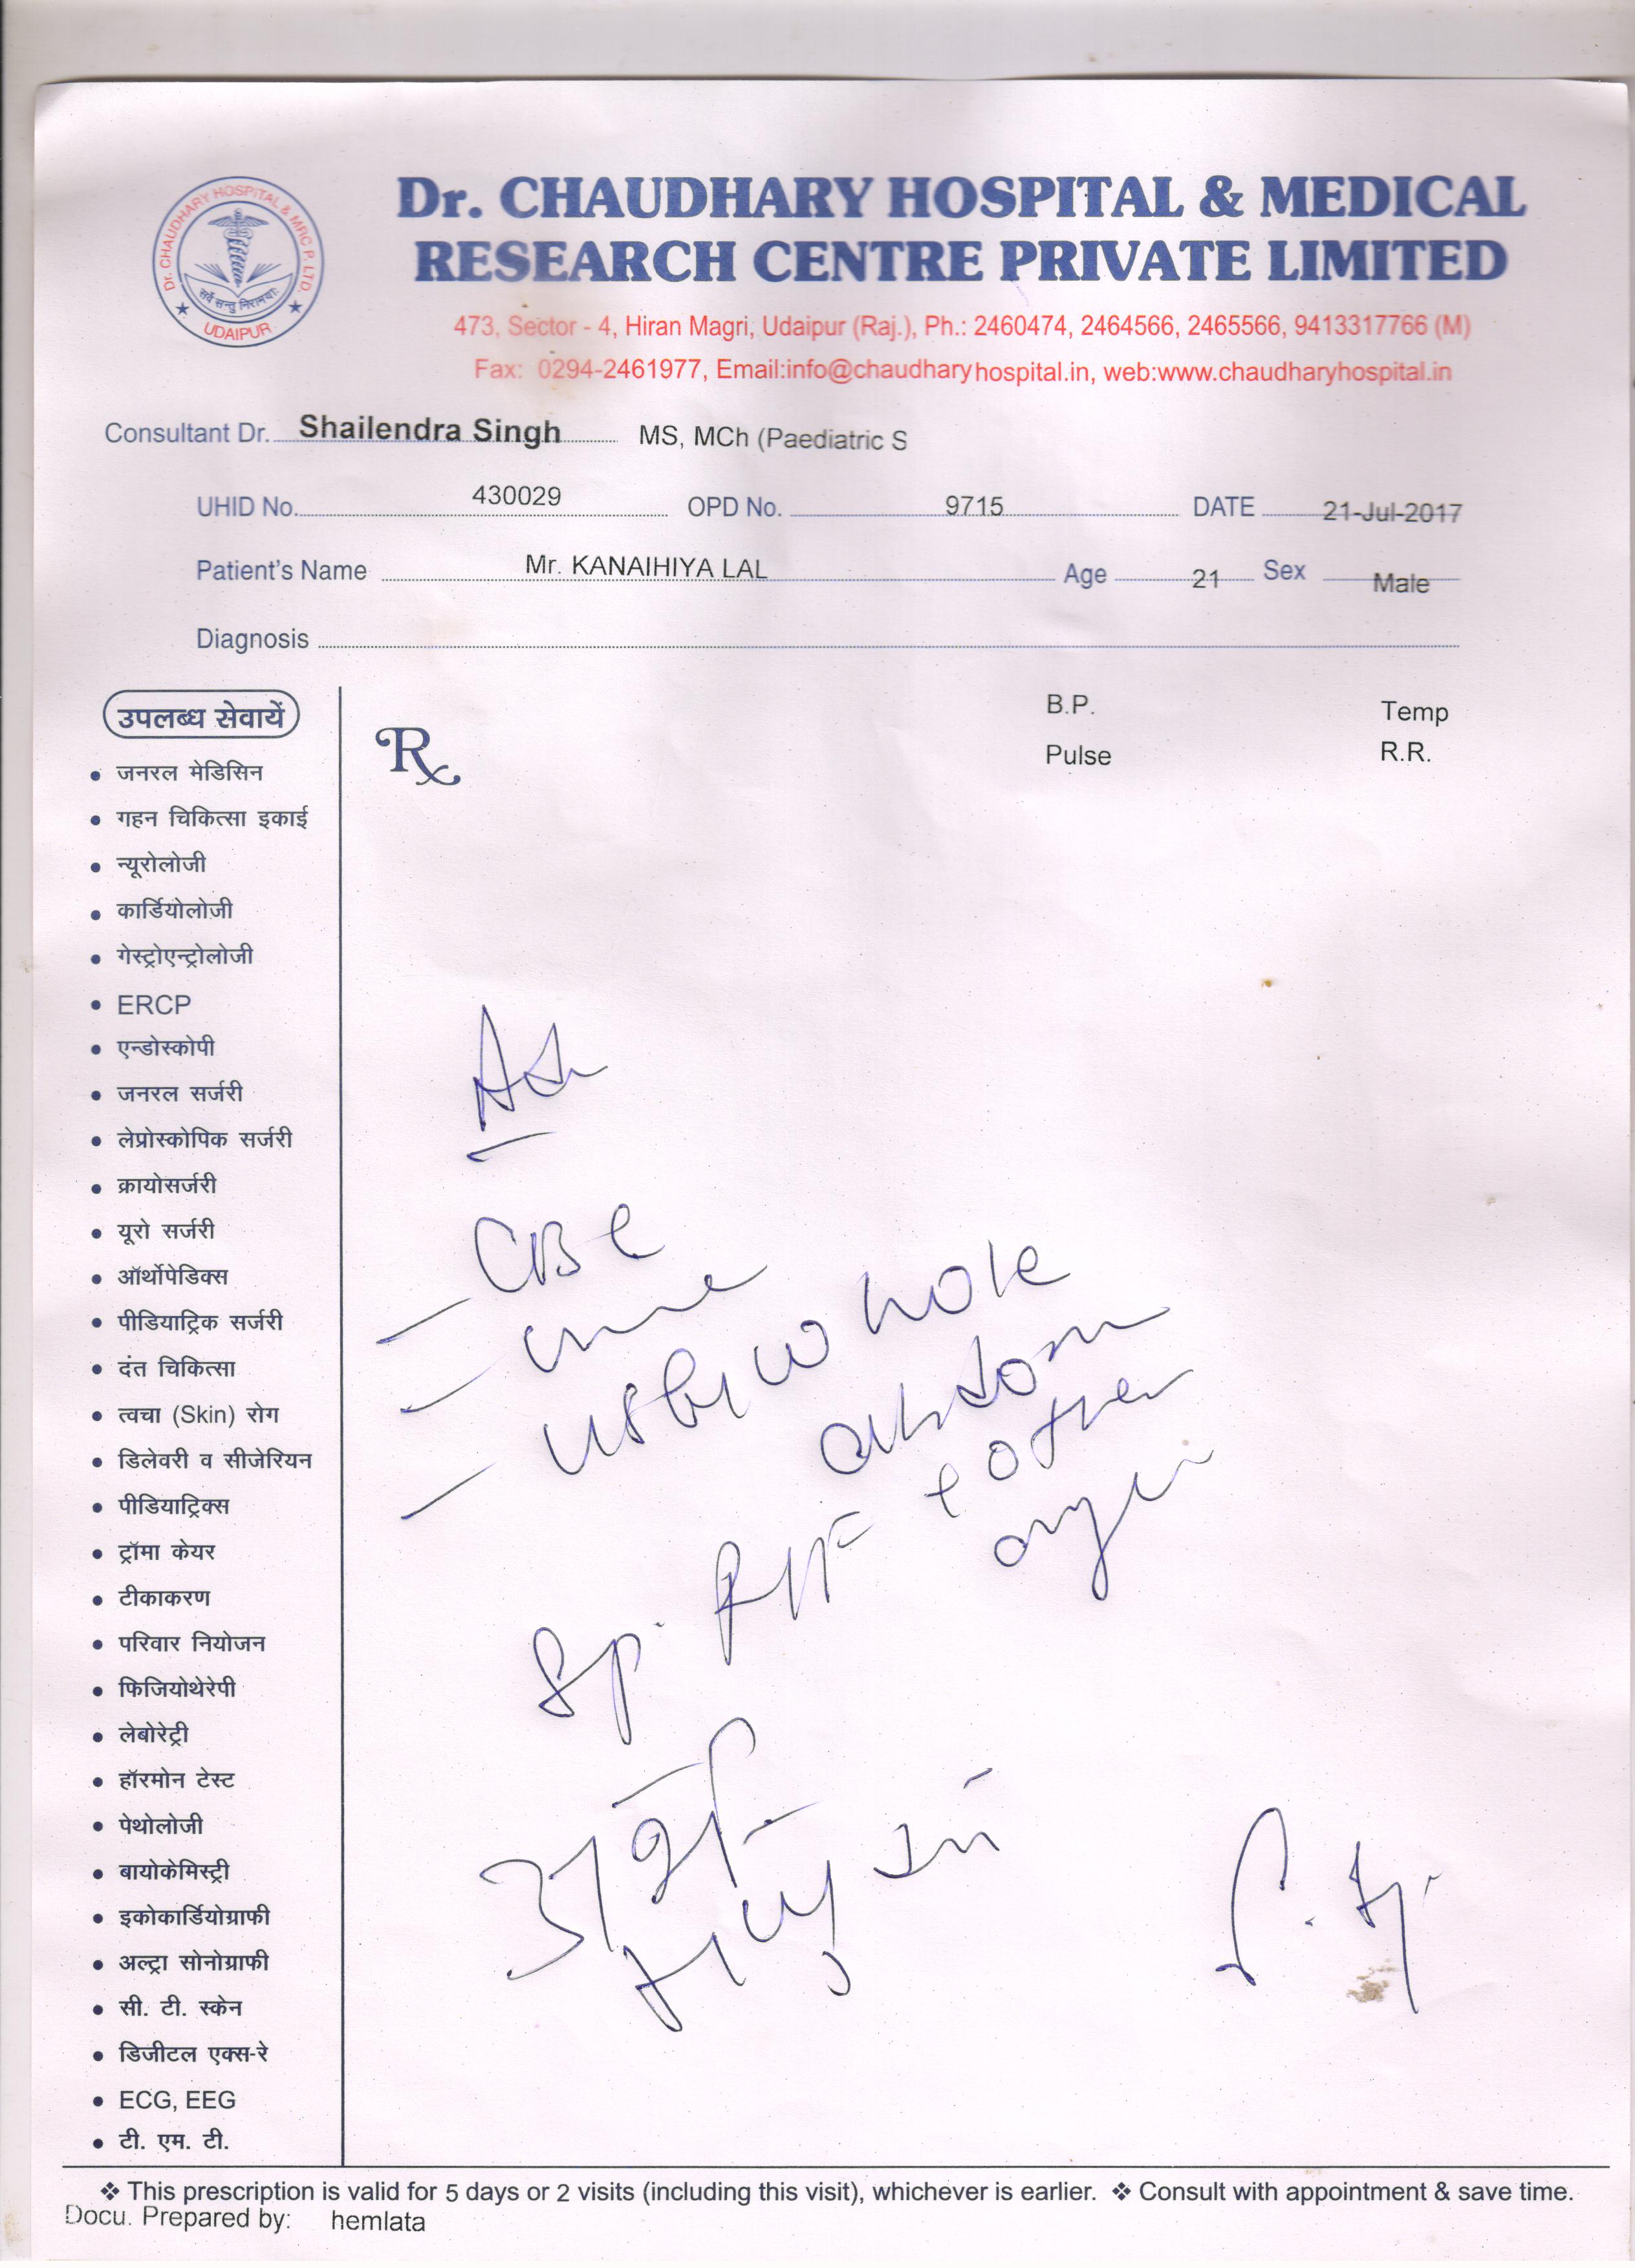 Dr. CHAUDHARY HOSPITAL & MRC P. LTD.
सर्वे सन्तु निरामयाः
UDAIPUR
Dr. CHAUDHARY HOSPITAL & MEDICAL
RESEARCH CENTRE PRIVATE LIMITED
473, Sector - 4, Hiran Magri, Udaipur (Raj.), Ph.: 2460474, 2464566, 2465566, 9413317766 (M)
Fax: 0294-2461977, Email:info@chaudharyhospital.in, web:www.chaudharyhospital.in
Consultant Dr. Shailendra Singh MS, MCh (Paediatric S
UHID No. 430029 OPD No. 9715 DATE 21-Jul-2017
Patient's Name Mr. KANAIHIYA LAL Age 21 Sex Male
Diagnosis
B.P. Temp
Pulse R.R.
Rx
उपलब्ध सेवायें
• जनरल मेडिसिन
• गहन चिकित्सा इकाई
• न्यूरोलोजी
• कार्डियोलोजी
• गेस्ट्रोएन्ट्रोलोजी
• ERCP
• एन्डोस्कोपी
• जनरल सर्जरी
• लेप्रोस्कोपिक सर्जरी
• क्रायोसर्जरी
• यूरो सर्जरी
• ऑर्थोपेडिक्स
• पीडियाट्रिक सर्जरी
• दंत चिकित्सा
• त्वचा (Skin) रोग
• डिलेवरी व सीजेरियन
• पीडियाट्रिक्स
• ट्रॉमा केयर
• टीकाकरण
• परिवार नियोजन
• फिजियोथेरेपी
• लेबोरेट्री
• हॉरमोन टेस्ट
• पेथोलोजी
• बायोकेमिस्ट्री
• इकोकार्डियोग्राफी
• अल्ट्रा सोनोग्राफी
• सी. टी. स्केन
• डिजीटल एक्स-रे
• ECG, EEG
• टी. एम. टी.
- CBC
- urine
- whole
other
Sp. RIF
❖ This prescription is valid for 5 days or 2 visits (including this visit), whichever is earlier. ❖ Consult with appointment & save time.
Docu. Prepared by: hemlata